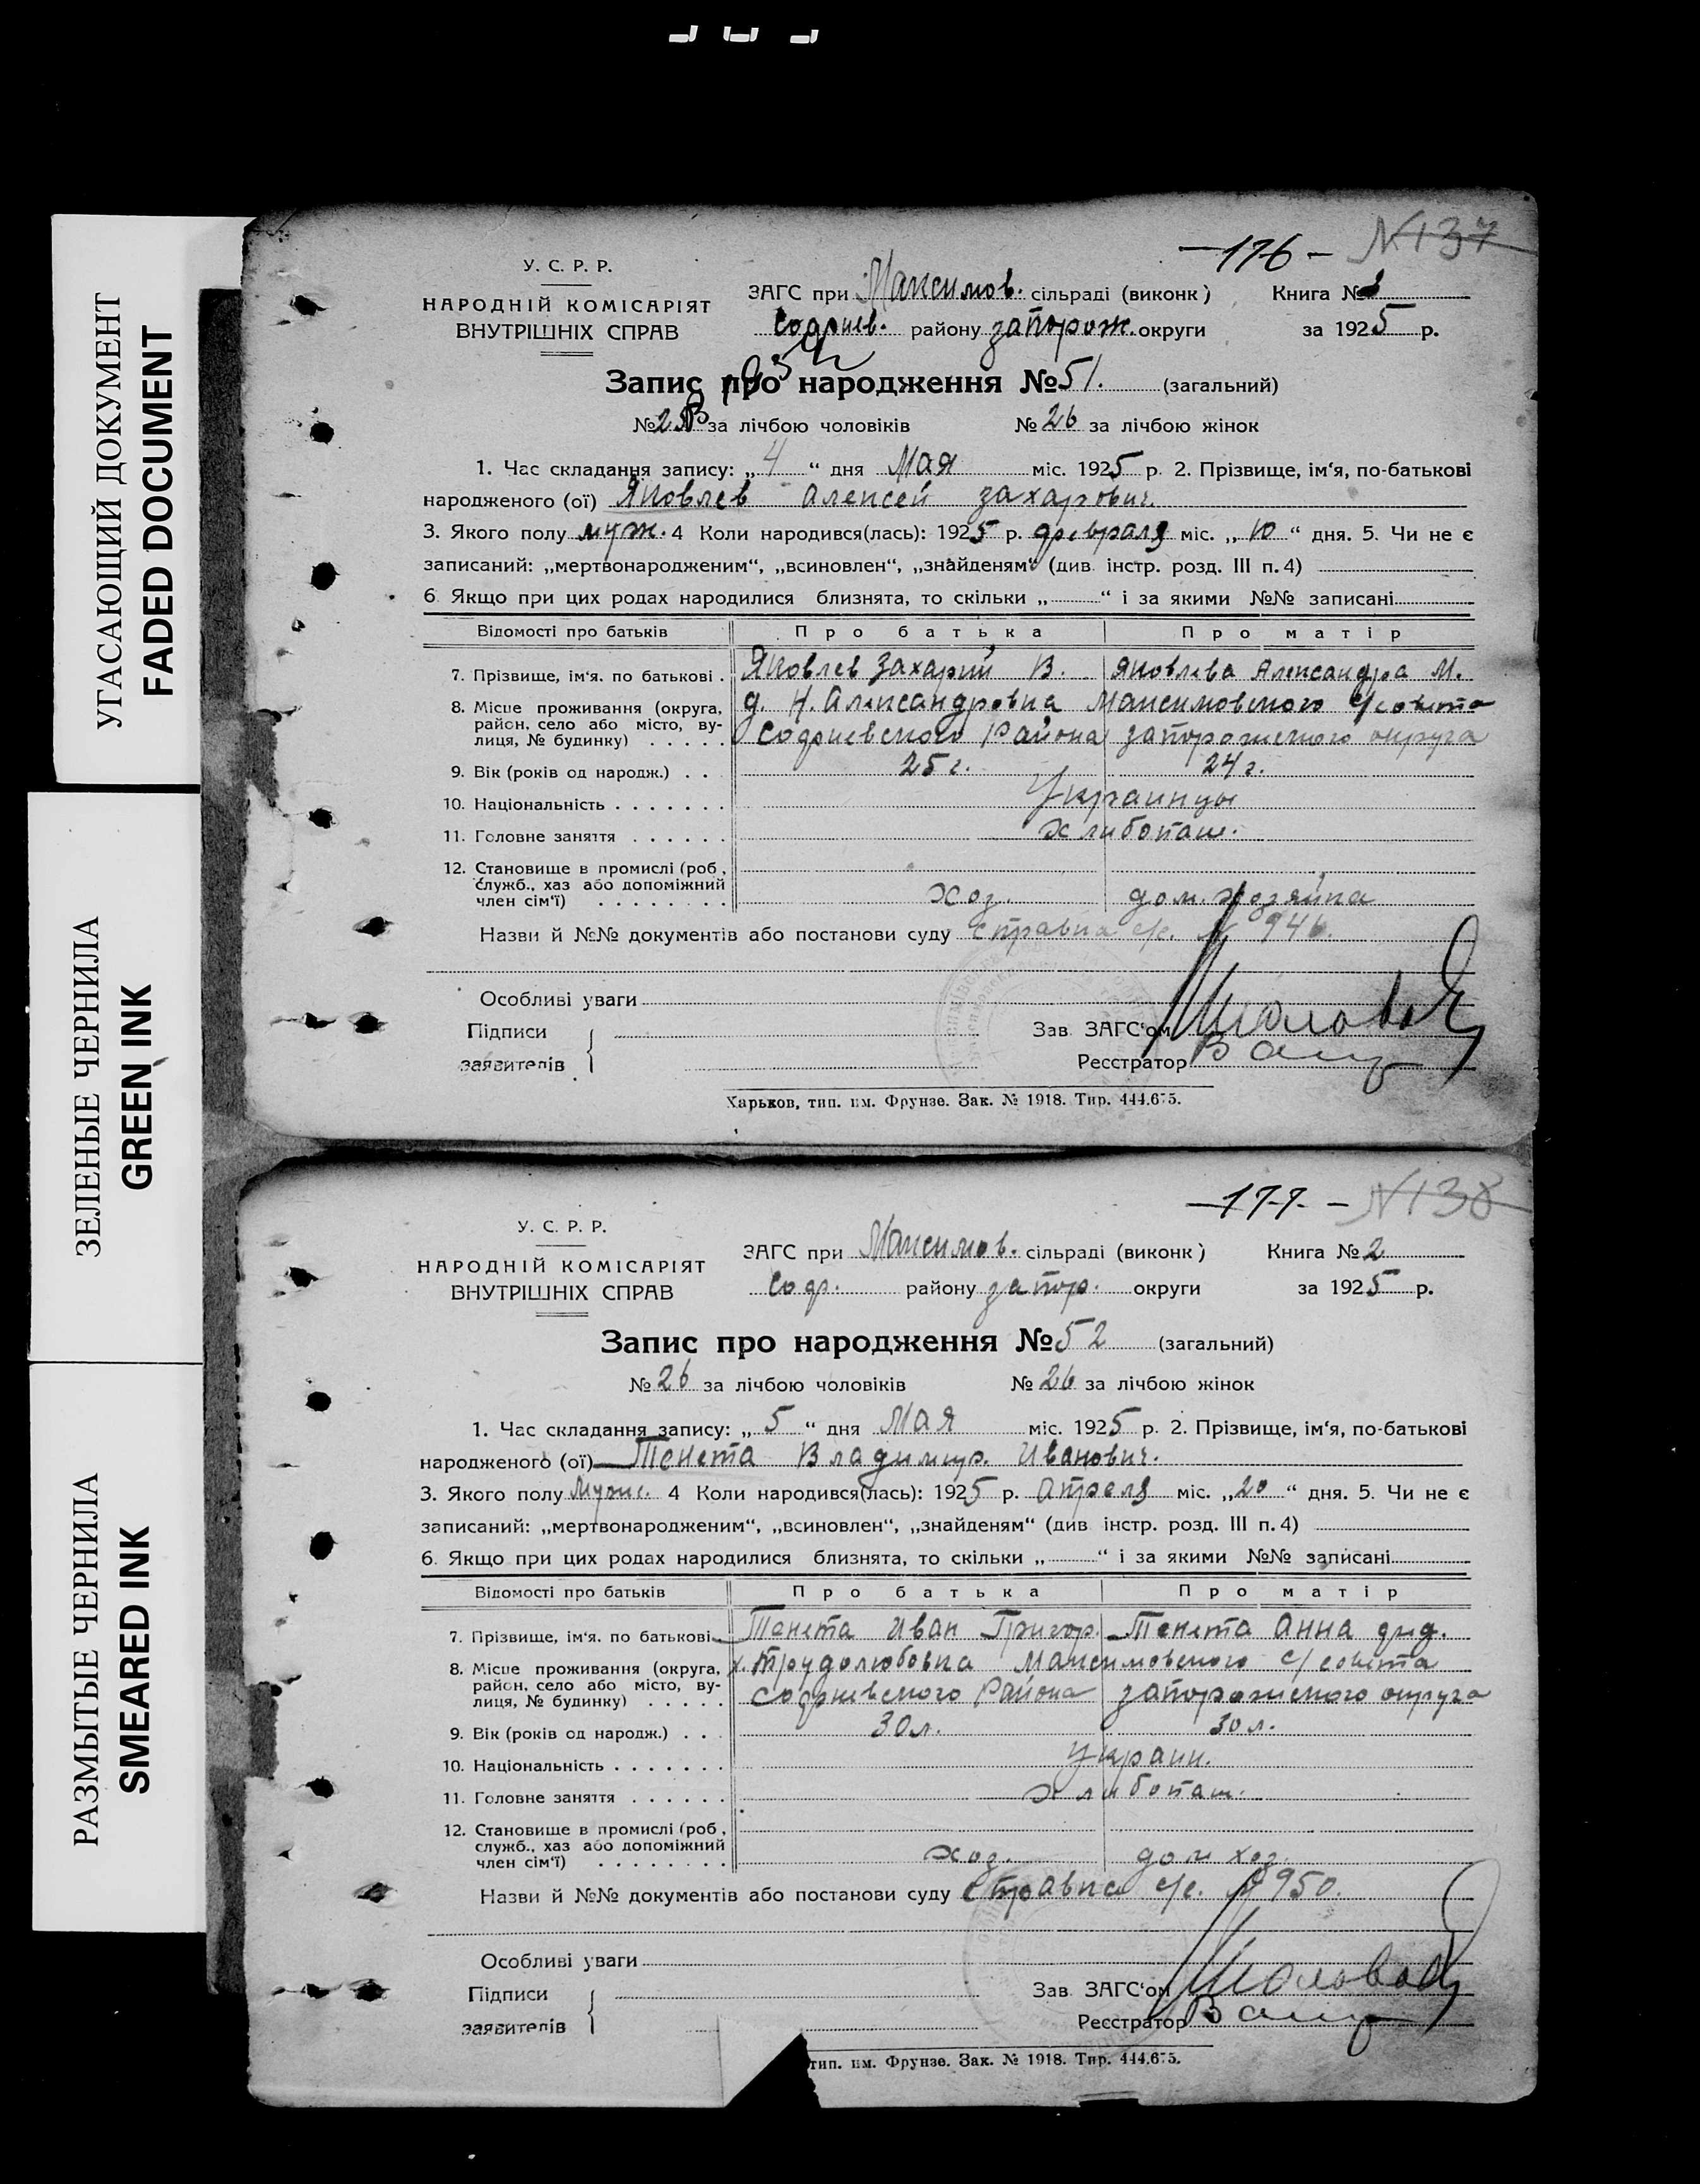 УГАСАЮЩИЙ ДОКУМЕНТ
FADED DOCUMENT
ЗЕЛЕНЫЕ ЧЕРНИЛА
GREEN INK
РАЗМЫТЫЕ ЧЕРНИЛА
SMEARED INK
—176— N137
У. С. Р. Р.
НАРОДНІЙ КОМІСАРІЯТ
ВНУТРІШНІХ СПРАВ
ЗАГС при Максимов. сільраді (виконк) Книга №
Софиев. району запорож. округи за 1925 р.
Запис про народження № 51. (загальний)
№ 2 за лічбою чоловіків № 26 за лічбою жінок
1. Час складання запису: „4“ дня Мая міс. 1925 р. 2. Прізвище, ім‘я, по-батькові
народженого (ої) Яковлев Алексей Захарович.
3. Якого полу муж. 4 Коли народився(лась): 1925 р. февраля міс. „10“ дня. 5. Чи не є
записаний: „мертвонародженим“, „всиновлен“, „знайденям“ (див. інстр. розд. III п. 4)
6. Якщо при цих родах народилися близнята, то скільки „ “ і за якими №№ записані
Відомості про батьків Про батька Про матір
7. Прізвище, ім‘я. по батькові. Яковлев Захарий В. Яковлева Александра М.
8. Місце проживання (округа, район, село або місто, вулиця, № будинку) д. Н. Александровка Максимовского с/совета
Софиевского Района запорожского округа
9. Вік (років од народж.) 25 г. 24 г.
10. Національність Украинцы
11. Головне заняття хлибопаш.
12. Становище в промислі (роб., служб., хаз або допоміжний член сім‘ї) хоз. дом. хозяйка
Назви й №№ документів або постанови суду справка с/с. № 946.
Особливі уваги
Підписи заявителів
Зав. ЗАГС‘ом
Реєстратор
Харьков, тип. им. Фрунзе. Зак. № 1918. Тир. 444.675.
—177.— N138
У. С. Р. Р.
НАРОДНІЙ КОМІСАРІЯТ
ВНУТРІШНІХ СПРАВ
ЗАГС при Максимов. сільраді (виконк) Книга № 2
Соф. району запор. округи за 1925 р.
Запис про народження № 52 (загальний)
№ 26 за лічбою чоловіків № 26 за лічбою жінок
1. Час складання запису: „5“ дня Мая міс. 1925 р. 2. Прізвище, ім‘я, по-батькові
народженого (ої) Тенета Владимир. Иванович.
3. Якого полу Мужс. 4 Коли народився(лась): 1925 р. Апреля міс. „20“ дня. 5. Чи не є
записаний: „мертвонародженим“, „всиновлен“, „знайденям“ (див. інстр. розд. III п. 4)
6. Якщо при цих родах народилися близнята, то скільки „ “ і за якими №№ записані
Відомості про батьків Про батька Про матір
7. Прізвище, ім‘я. по батькові Тенета Иван Григор. Тенета Анна
8. Місце проживання (округа, район, село або місто, вулиця, № будинку) х. Трудолюбовка Максимовского с/совета
Софиевского Района запорожского округа
9. Вік (років од народж.) 30 л. 30 л.
10. Національність Украин.
11. Головне заняття хлибопаш.
12. Становище в промислі (роб., служб., хаз або допоміжний член сім‘ї) хоз. дом хоз.
Назви й №№ документів або постанови суду справка с/с. № 950.
Особливі уваги
Підписи заявителів
Зав. ЗАГС‘ом
Реєстратор
тип. им. Фрунзе. Зак. № 1918. Тир. 444.675.